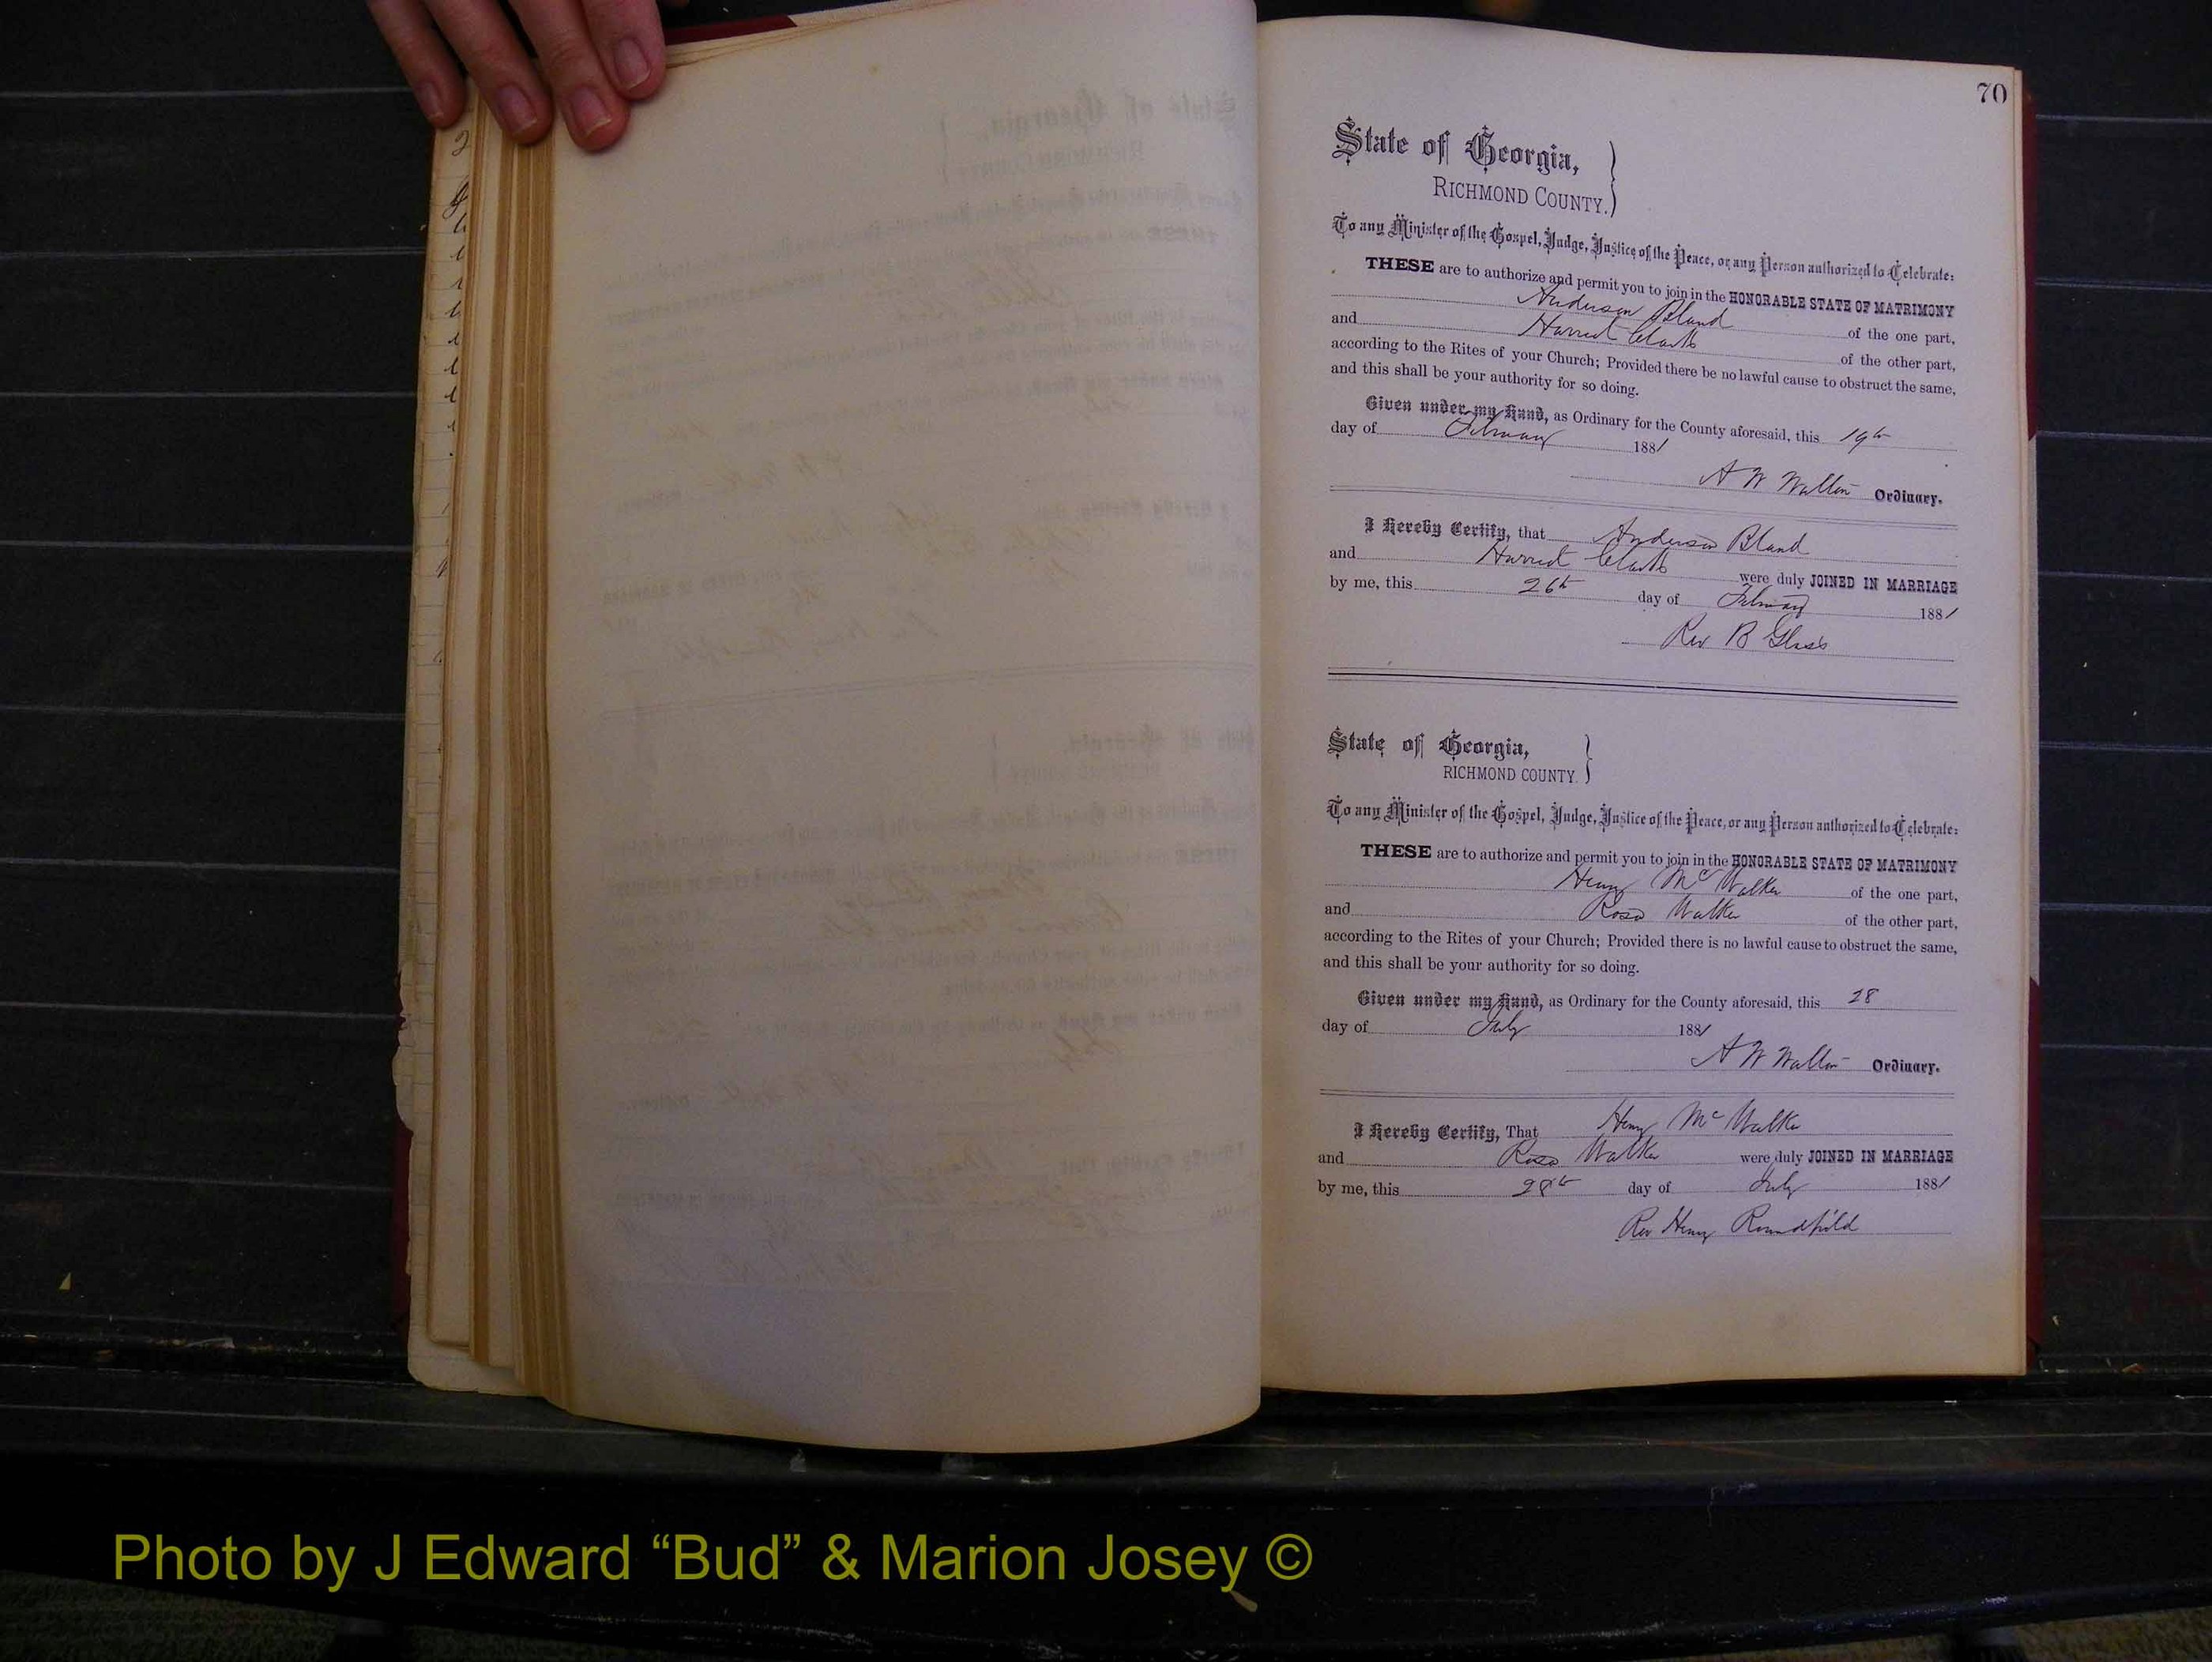 70
State of Georgia,
RICHMOND COUNTY.
To any Minister of the Gospel, Judge, Justice of the Peace, or any Person authorized to Celebrate:
THESE are to authorize and permit you to join in the HONORABLE STATE OF MATRIMONY
Anderson Bland of the one part,
and Harriet Clark of the other part,
according to the Rites of your Church; Provided there be no lawful cause to obstruct the same,
and this shall be your authority for so doing.
Given under my Hand, as Ordinary for the County aforesaid, this 19th
day of February 1881
A W Walton Ordinary.
I Hereby Certify, that Anderson Bland
and Harriet Clark were duly JOINED IN MARRIAGE
by me, this 26th day of February 1881
Rev B Glass
State of Georgia,
RICHMOND COUNTY.
To any Minister of the Gospel, Judge, Justice of the Peace, or any Person authorized to Celebrate:
THESE are to authorize and permit you to join in the HONORABLE STATE OF MATRIMONY
Henry Mc Walker of the one part,
and Rosa Walker of the other part,
according to the Rites of your Church; Provided there is no lawful cause to obstruct the same,
and this shall be your authority for so doing.
Given under my Hand, as Ordinary for the County aforesaid, this 28
day of July 1881
A W Walton Ordinary.
I Hereby Certify, That Henry Mc Walker
and Rosa Walker were duly JOINED IN MARRIAGE
by me, this 28th day of July 1881
Rev Henry Roundfield
Photo by J Edward “Bud” & Marion Josey ©